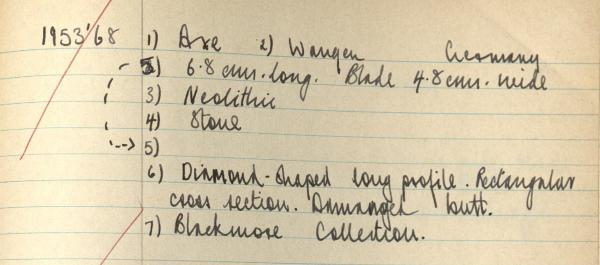 1953'68 1) Axe 2) Wangen Germany
5) 6.8 cms. long. Blade 4.8 cms. wide
3) Neolithic
4) Stone
5)
6) Diamond-shaped long profile. Rectangular
cross section. Damaged butt.
7) Blackmore Collection.